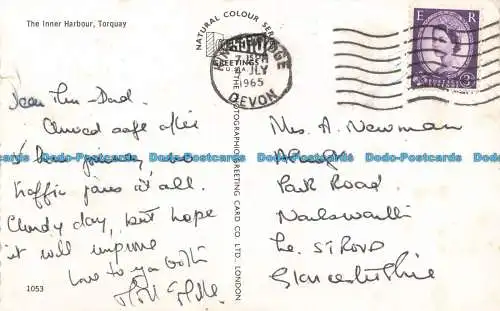 The Inner Harbour, Torquay
NATURAL COLOUR SERIES
GREETINGS
KINGSBRIDGE
7 JLY
1965
DEVON
E R
3D
THE PHOTOGRAPHIC GREETING CARD CO. LTD., LONDON
Dear Mum & Dad.
Arrived safe after
a journey, no
traffic jams at all.
Cloudy day, but hope
it will improve
Love to you both
Mrs. A. Newman
Park Road
Nailsworth
Nr. STROUD
Gloucestershire
1053
Dodo-Postcards Dodo-Postcards Dodo-Postcards Dodo-Postcards
Dodo-Postcards Dodo-Postcards Dodo-Postcards Dodo-Postcards